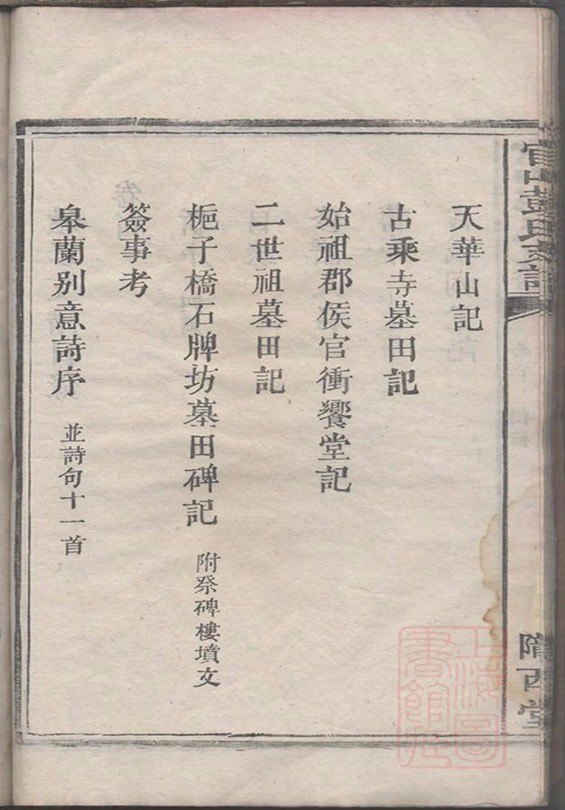 官山彭氏支譜
隴西堂
天華山記
古乘寺墓田記
始祖郡侯官衝饗堂記
二世祖墓田記
梔子橋石牌坊墓田碑記 附祭碑樓墳文
簽事考
皋蘭别意詩序 並詩句十一首
上海圖書館藏